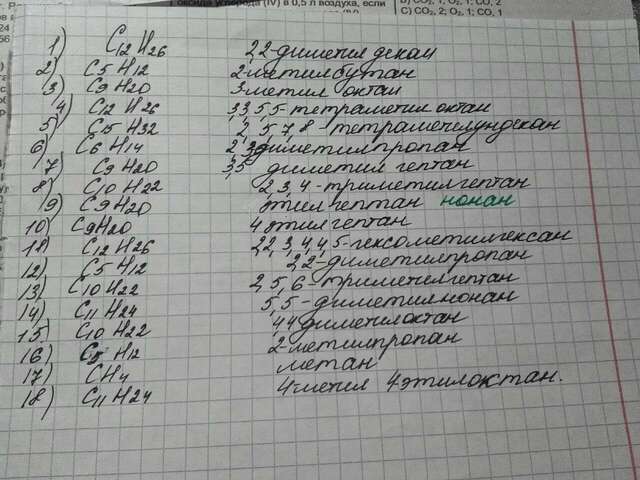 оксида углерода (IV) в 0,5 л воздуха, если
B) CO₂, 1; O₂, 1; CO, 2
C) CO₂, 2; O₂, 1; CO, 1
1) C12 H26 2,2-диметил декан
2) C5 H12 2-метилбутан
3) C9 H20 3метил октан
4) C12 H26 3,3 5,5-тетраметил октан
5) C15 H32 2,5,7,8-тетраметилундекан
6) C6 H14 2,2 диметилпропан
7) C9 H20 3,5 диметил гептан
8) C10 H22 2,3,4-триметилгептан
9) C9 H20 этил гептан нонан
10) C9H20 4 этил гептан
11) C12 H26 2,2,3,4,4,5-гексометилгексан
12) C5 H12 2,2-диметилпропан
13) C10 H22 2,5,6-триметилгептан
14) C11 H24 5,5-диметилнонан
15) C10 H22 4,4 диметилоктан
16) C5 H12 2-метилпропан
17) CH4 метан
18) C11 H24 4-метил 4этилоктан.